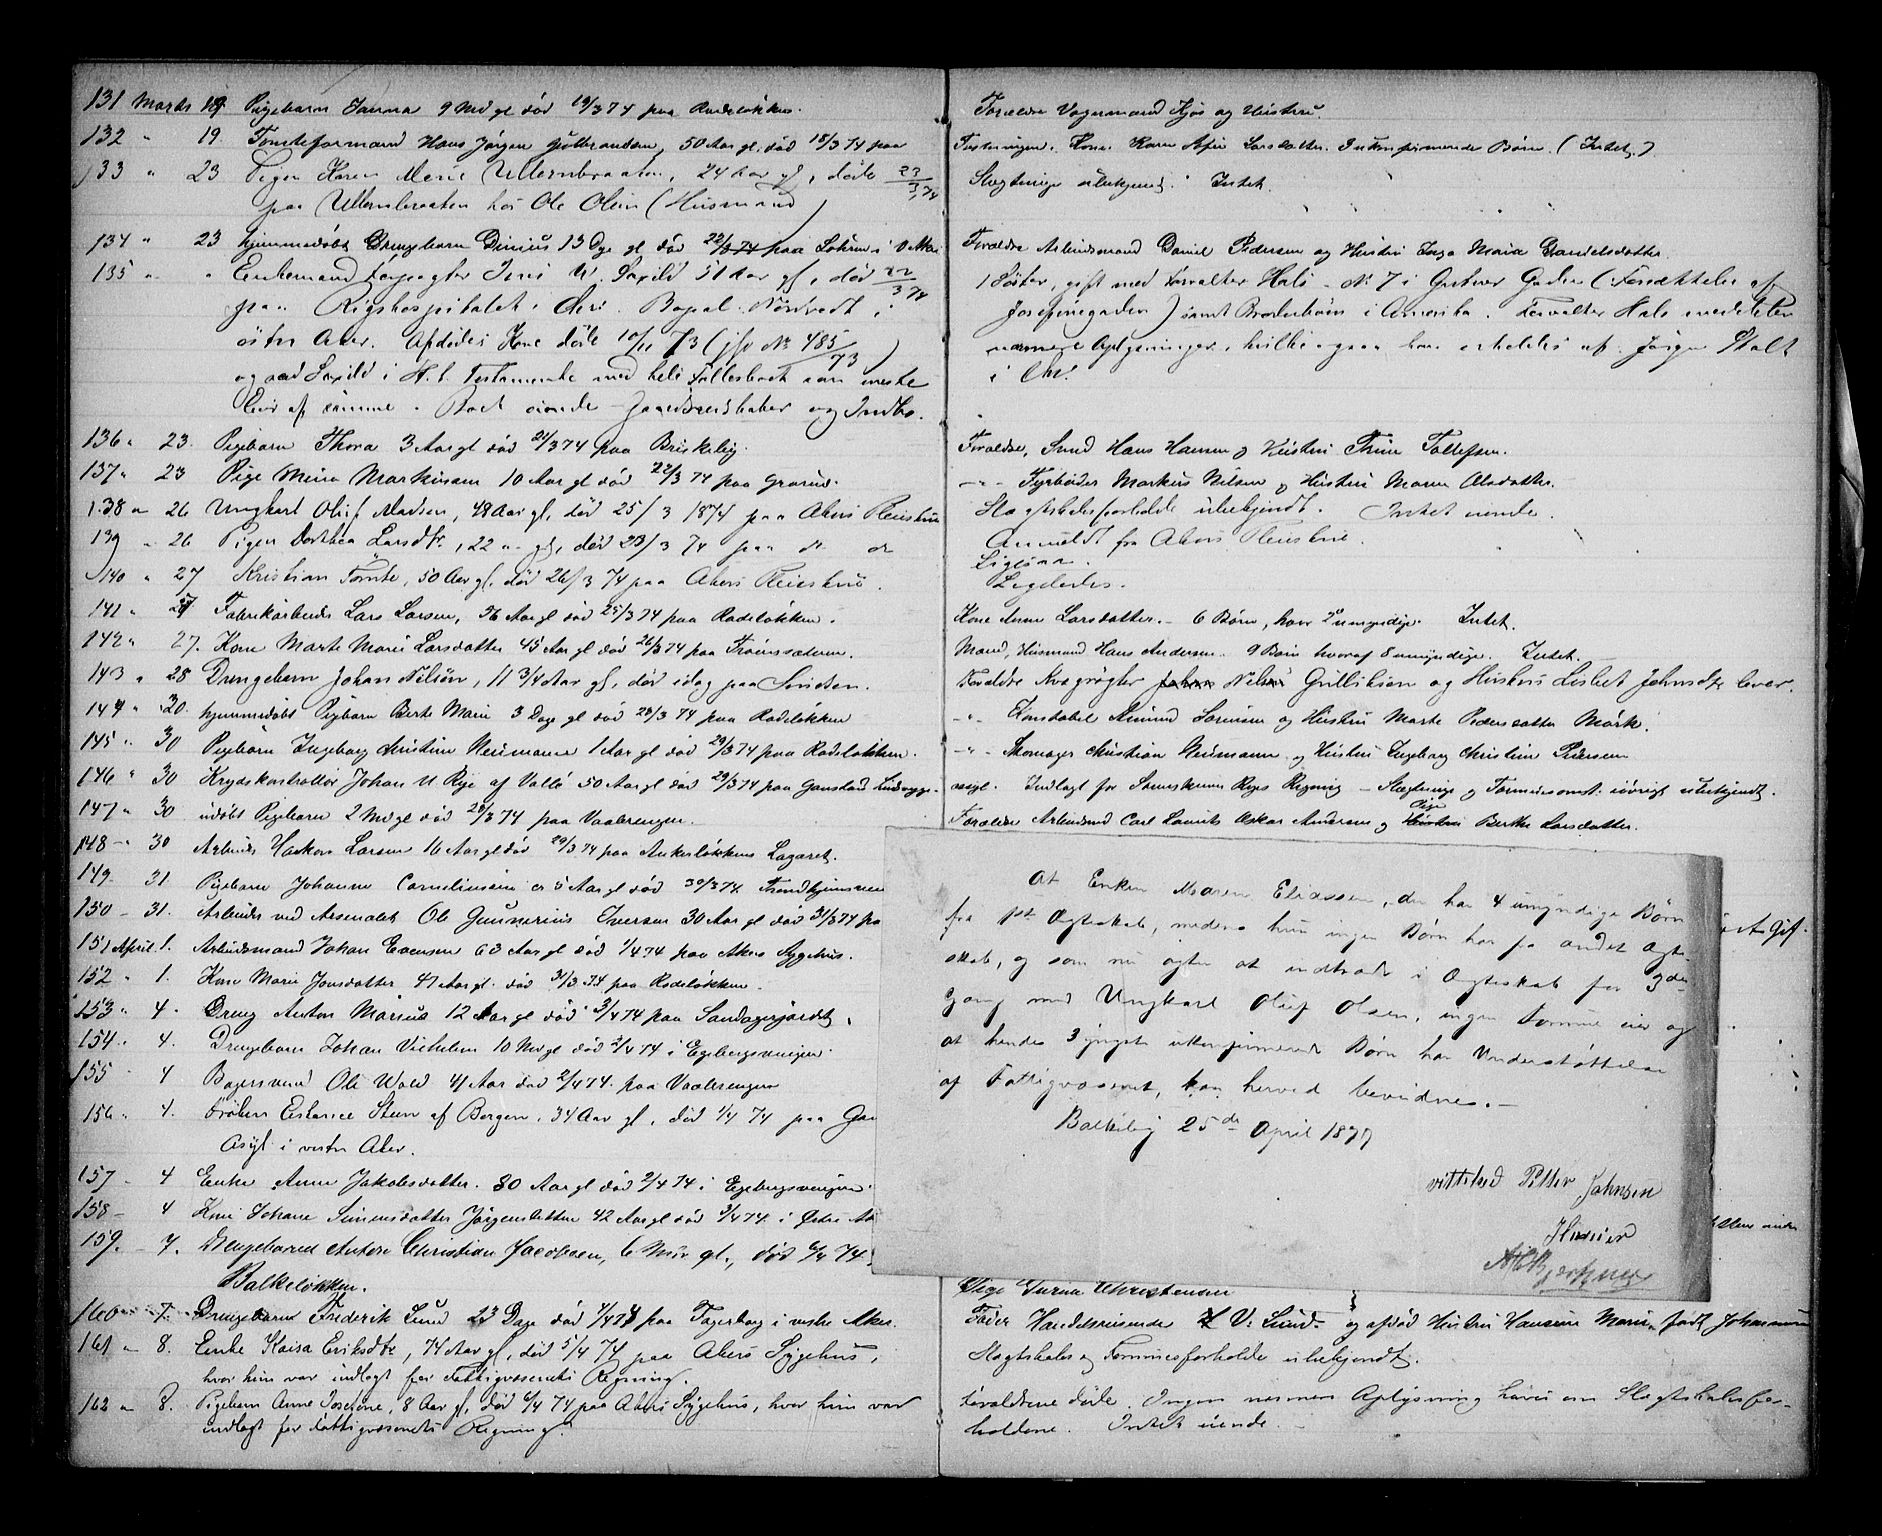 131 Marts 19 Pigebarn Janna 9 Md gl død 19/3 74 paa Rodeløkken.
132 " 19. Tomteformand Hans Jørgen Gulbrandsen, 50 Aar gl. død 18/3 74 paa
133 " 23 Pigen Karen Marie Ullernbraaten, 24 Aar gl, døde 23/3 74
paa Ullernbraaten hos Ole Olsen (Husmand)
134 " 23 hjemmedøbt Drengebarn Dinius 13 Dge gl død 22/3 74 paa i V. Aker
135 " " Enkemand Forpagter Jens W. Saxild 51 Aar gl, død 22/3 74
paa Rigshospitalet i Chr. Bopæl i
østre Aker. Afdødes Kone døde 10/11 73 (jfr No 485/73)
og aad Saxild i H. t. Testamente med hele Fællesboet som eneste
af samme. Boet eiende Gaardsredskaber og Indbo.
136 " 23. Pigebarn Thora 3 Aar gl død 21/3 74 paa Briskeby.
137 " 23 Pige Mina Markusen 10 Aar gl død 22/3 74 paa Grorud.
138 " 26 Ungkarl Oluf Madsen, 48 Aar gl, død 25/3 1874 paa Akers Pleiestue
139 " 26 Pigen Dorthea Larsdtr, 22 " gl, død 23/3 74 paa do do
140 " 27 Kristian Tomte, 50 Aar gl, død 26/3 74 paa Akers Pleiestue.
141 " 27 Fabrikarbeider Lars Larsen, 36 Aar gl død 25/3 74 paa Rodeløkken.
142 " 27. Kone Marte Marie Larsdatter 45 Aar gl død 26/3 74 paa
143 " 28 Drengebarn Johan Nilsen, 11 3/4 Aar gl, død idag paa
144 " 30. hjemmedøbt Pigebarn Berte Marie 3 Dage gl død 28/3 74 paa Rodeløkken
145 " 30 Pigebarn Ingeborg Kristine Neumann 1 Aar gl død 29/3 74 paa Rodeløkken.
146 " 30 Krydskontrollør Johan U Rye af Vallø 50 Aar gl død 29/3 74 paa Gaustad Sindsyge-
147 " 30 udøbt Pigebarn 2 Md gl død 28/3 74 paa Vaalerengen.
148 - 30 Arbeids Haakon Larsen 16 Aar gl død 29/3 74 paa Ankerløkkens Lazaret.
149 31. Pigebarn Johanne Corneliussen 5 Aar gl død 30/3 74
150 - 31. Arbeider ved Arsenalet Ole Gunnerius Iversen 30 Aar gl død 31/3 74 pa
151 April 1. Arbeidsmand Johan Evensen 63 Aar gl død 1/4 74 paa Akers Sygehus.
152 " 1. Kone Marie Jonsdatter 41 Aar gl. død 31/3 74 paa Rodeløkken.
153 " 4. Dreng Anton Marius 12 Aar gl død 3/4 74 paa Sandagergjordet.
154 " 4. Drengebarn Johan Vilhelm 10 Md gl død 2/4 74 i Egebergsveien.
155 4 Bagersvend Ole Wold 41 Aar død 2/4 74. paa Vaalerengen
156 " 4. Frøken Steen af Bergen. 34 Aar gl, død 1/4 74 paa Gau
Asyl i vestre Aker.
157 - 4 Enke Anne Jakobsdatter. 80 Aar gl død 2/4 74 i Egebergsveien.
158 - 4 Kone Johane Simensdatter Jørgensletten 42 Aar gl død 3/4 74. i Østre A
159. - 7. Drengebarnet Andor Christian Jacobsen, 6 Mdr gl., død 6/4 74.
Balkeløkken.
160 7. Drengebarn Frederik Lund 23 Dage død 4/4 74 paa Fagerborg i vestre Aker.
161 " 8. Enke Kaisa Eriksdtr, 74 Aar gl, død 5/4 74 paa Akers Sygehus,
hvor hun var indlagt for Fattigvæsenets Regning.
162 " 8. Pigebarn Anne Josefine, 8 Aar gl, død 6/4 74 paa Akers Sygehus, hvor hun var
indlagt for Fattigvæsenets Regning.
Forældre Vognmand Kjøs og Hustru.
Kone Karen Larsdatter. Børn. (Intet.)
Slægtninge ubekjendt. Intet.
Forældre Arbeidsmand Daniel Pedersen og Hustru Inga Maria Danielsdatter.
1 Søster, gift med Forvalter Hals No 7 i Gaden (Forsættelse af
Josefinegaden) samt Broderbørn i Amerika. Forvalter Hals meddeler
nærmere Oplysninger, hvilke ogsaa kan erholdes af Jørgen Stolt
i Chr.
Forældre, Smed Hans Hansen og Hustru Trine Tollefsen.
-"- Fyrbøder Markus Nilsen og Hustru Maren Olsdatter.
Slægtskabsforholde ubekjendt. Intet eiende.
Anmeldt fra Akers Pleiestue.
Ligesaa.
Ligeledes.
Kone Anne Larsdatter. - 6 Børn, hvor 2 umyndige. Intet.
Mand, Husmand Hans Andersen. 9 Børn hvoraf 8 umyndige. Intet.
Forældre Kvægrøgter Johan Nilsen Gulliksen og Hustru Lisbet Johnsdtr lever.
-"- Konstabel Amund Sørensen og Hustru Marte Pedersdatter Mørk.
-"- Skomager Kristian Neumann og Hustru Ingeborg Christine Pedersen
asyl. Indlagt for Regning - Slægtninge og Formuesomst. iøvrigt ubekjendt.
Forældre Arbeidsmd Carl Laurits Oskar Andersen og Hustru Pige Berthe Larsdatter.
At Enken Maren Eliassen, der har 4 umyndige Børn
fra 1ste Ægteskab, medens hun ingen Børn har fra andet Ægte-
skab, og som nu agter at indtræde i Ægteskab for 3die
Gang med Ungkarl Oluf Olsen, ingen Formue eier og
at hendes 3 yngste ukonfirmerede Børn har Understøttelse
af Fattigvæsenet, kan herved bevidnes. -
Balkeby 25de April 1877
Petter Johnsen
Pige Christensen
Fader Handelsreisende H V. Lund. og afdød Hustru Hansine Marie, født Johannesen
Slægtskabs og Formuesforholde ubekjendt.
Forældrene døde. Ingen nærmere Oplysning haves om Slægtskabsfor-
holdene. Intet eiende.